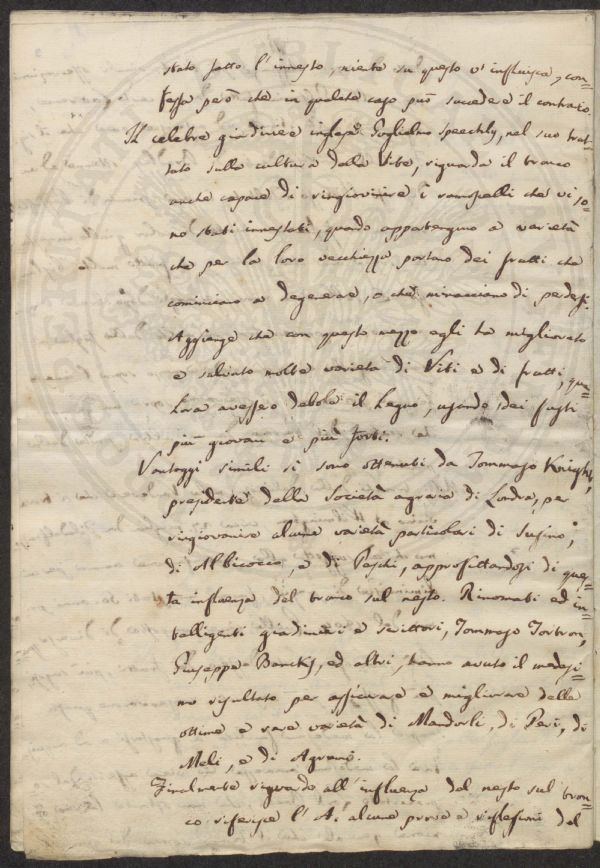 stato fatto l'innesto, niente su questo v'influisca, con=
fessa però che in qualche caso può succedere il contrario.
Il celebre giardiniere inglese Guglielmo Speechly, nel suo trat=
tato sulla cultura della Vite, riguarda il tronco
anche capace di ringiovinire i ramoscelli che vi so=
no stati innestati, quando appartengono a varietà
che per la loro vecchiezza portano dei frutti che
cominciano a degenerare, o che minacciano di perdersi.
Aggiunge che con questo mezzo egli ha migliorato
e salvato molte varietà di Viti e di frutti, qua=
lora avessero debole il Legno, usando dei fusti
più giovani e più forti.
Vantaggi simili si sono ottenuti da Tommaso Knight,
presidente della Società agraria di Londra, per
ringiovanire alcune varietà particolari di Susino,
di Albicocco, e di Peschi, approfittandosi di ques=
ta influenza del tronco sul nesto. Rinomati ed in=
telligenti giardinieri e scrittori, Tommaso Torbron,
Giuseppe Bancks, ed altri, hanno avuto il medesi=
mo risultato per assicurare e migliorare delle
ottime e rare varietà di Mandorli, di Peri, di
Meli, e di Agrumi.
Finalmente riguardo all'influenza del nesto sul tron=
co riferisce l'A. alcune prove e riflessioni del